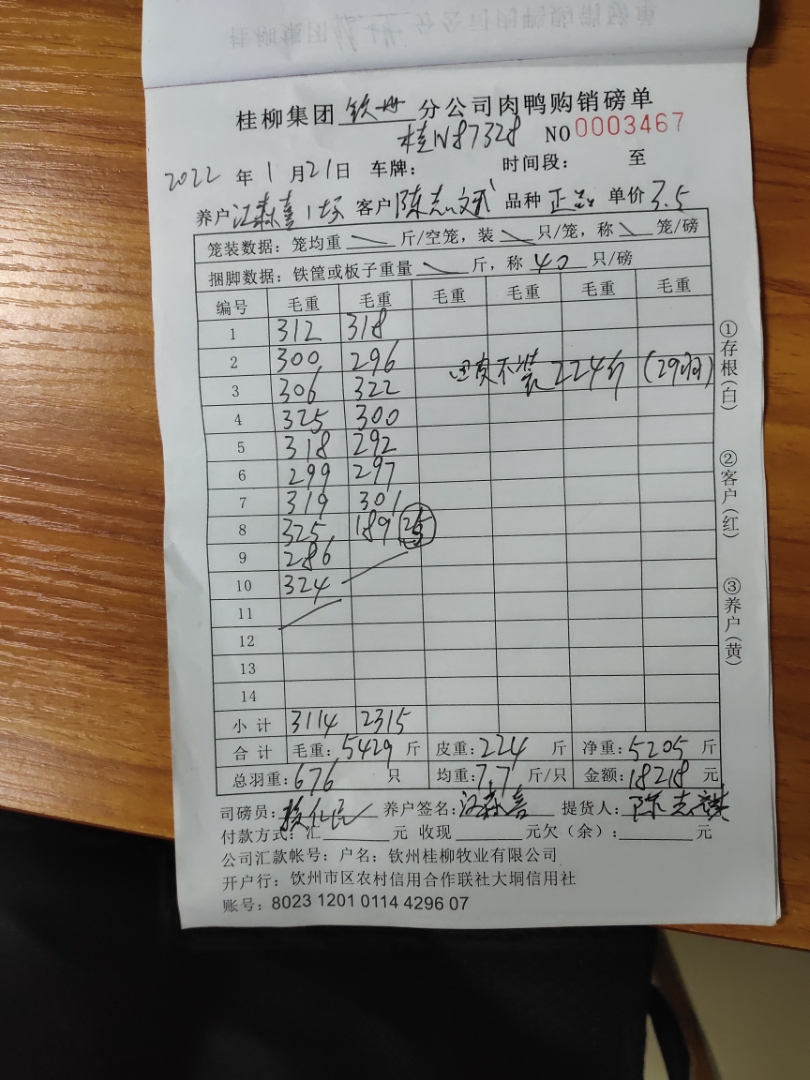 桂柳集团 钦州 分公司肉鸭购销磅单
桂N87328 NO 0003467
2022 年 1 月 21 日 车牌: 时间段: 至
养户 江森喜1场 客户 陈志斌 品种 正品 单价 3.5
笼装数据: 笼均重 斤/空笼, 装 只/笼, 称 笼/磅
捆脚数据: 铁筐或板子重量 斤, 称 40 只/磅
编号 毛重 毛重 毛重 毛重 毛重 毛重
1 312 318
2 300 296
不装224斤 (29羽)
3 306 322
4 325 300
5 318 292
6 299 297
7 319 301
8 325 189
9 286
10 324
11
12
13
14
小计 3114 2315
合计 毛重: 5429 斤 皮重: 224 斤 净重: 5205 斤
总羽重: 676 只 均重: 7.7 斤/只 金额: 18218 元
司磅员: 养户签名: 江森喜 提货人: 陈志
付款方式: 汇 元 收现 元欠(余): 元
公司汇款帐号: 户名: 钦州桂柳牧业有限公司
开户行: 钦州市区农村信用合作联社大垌信用社
账号: 8023 1201 0114 4296 07
①存根(白)
②客户(红)
③养户(黄)